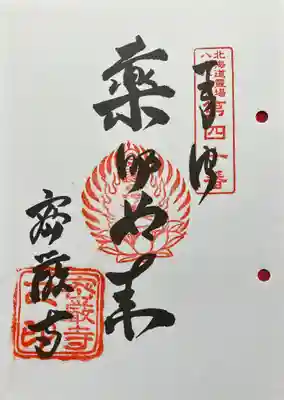 北海道霊場
八十八
第四十番
奉拝
薬師如来
密厳寺
密厳寺